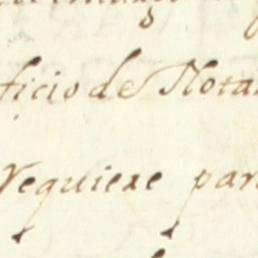 ficio de Nota
requiere par